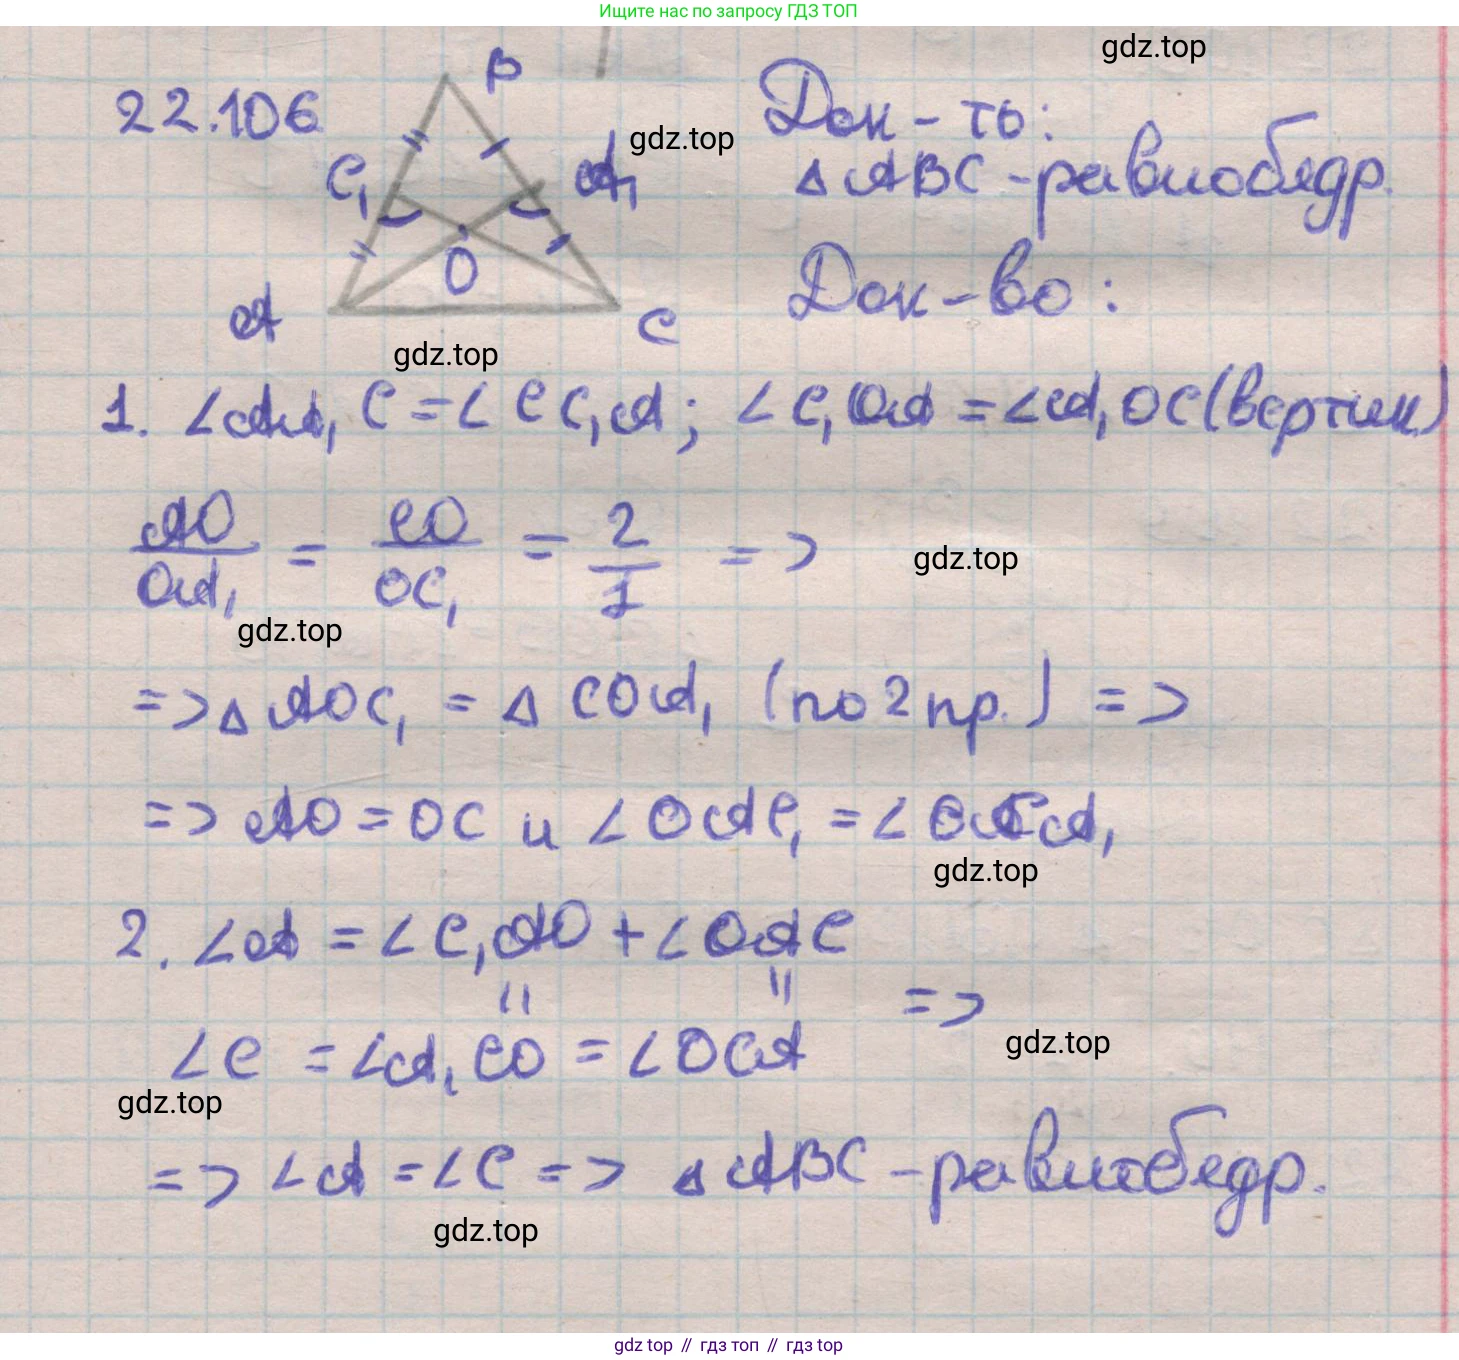 Ищите нас по запросу ГДЗ ТОП
gdz.top
22.106
B
C₁
A₁
O
A
C
gdz.top
Док-ть:
△ABC - равнобедр.
Док-во:
gdz.top
1. ∠AA₁C = ∠CC₁A; ∠C₁OA = ∠A₁OC (вертик)
AO/OA₁ = CO/OC₁ = 2/1 =>
gdz.top
gdz.top
=> △AOC₁ = △COA₁ (по 2 пр.) =>
=> AO = OC и ∠OAC₁ = ∠OCA₁
gdz.top
2. ∠A = ∠C₁AO + ∠OAC
" " =>
∠C = ∠A₁CO = ∠OCA
gdz.top
gdz.top
=> ∠A = ∠C => △ABC - равнобедр.
gdz.top
gdz top // гдз топ // гдз top